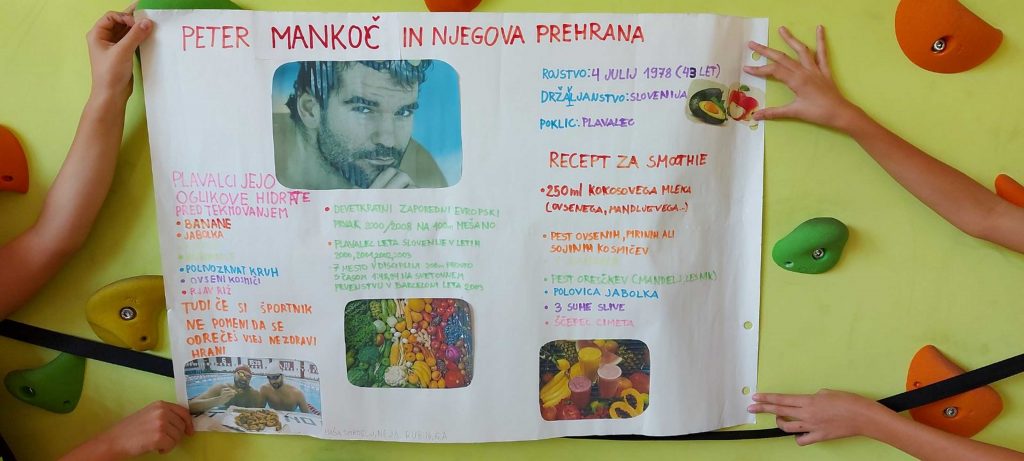 PETER MANKOČ IN NJEGOVA PREHRANA
ROJSTVO: 4 JULIJ 1978 (43 LET)
DRŽALJANSTVO: SLOVENIJA
POKLIC: PLAVALEC
PLAVALCI JEJO
OGLIKOVE HIDRATE
PRED TEKMOVANJEM
• BANANE
• JABOLKA
• POLNOZRNAT KRUH
• OVSENI KOSMIČI
• RJAV RIŽ
TUDI ČE SI ŠPORTNIK
NE POMENI DA SE
ODREČEŠ VSEJ NEZDRAVI
HRANI
• DEVETKRATNI ZAPOREDNI EVROPSKI
PRVAK 2000/2008 NA 100m MEŠANO
• PLAVALEC LETA SLOVENIJE V LETIH
2000, 2001, 2002, 2003
7 MESTO V DISCIPLINI 200m PROSTO
S ČASOM NA SVETOVNEM
PRVENSTVU V BARCELONI LETA 2003
RECEPT ZA SMOTHIE
• 250ml KOKOSOVEGA MLEKA
(OVSENEGA, MANDLJEVEGA..)
• PEST OVSENIH, PIRINIH ALI
SOJINIH KOSMIČEV
• PEST OREŠČKEV (MANDELJ, LEŠNIK)
• POLOVICA JABOLKA
• 3 SUHE SLIVE
• ŠČEPEC CIMETA